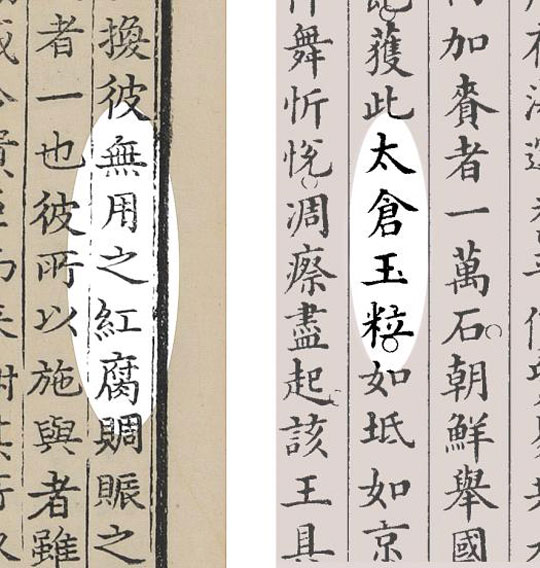 換彼無用之紅腐賙賑之
者一也彼所以施與者雖
加賚者一萬石朝鮮舉國
獲此太倉玉粒如坻如京
舞忻悅凋瘵盡起該王具